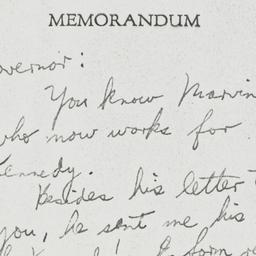 MEMORANDUM
overnor:
You know Marvin
who now works for
Kennedy.
Besides his letter t
you, he sent me his